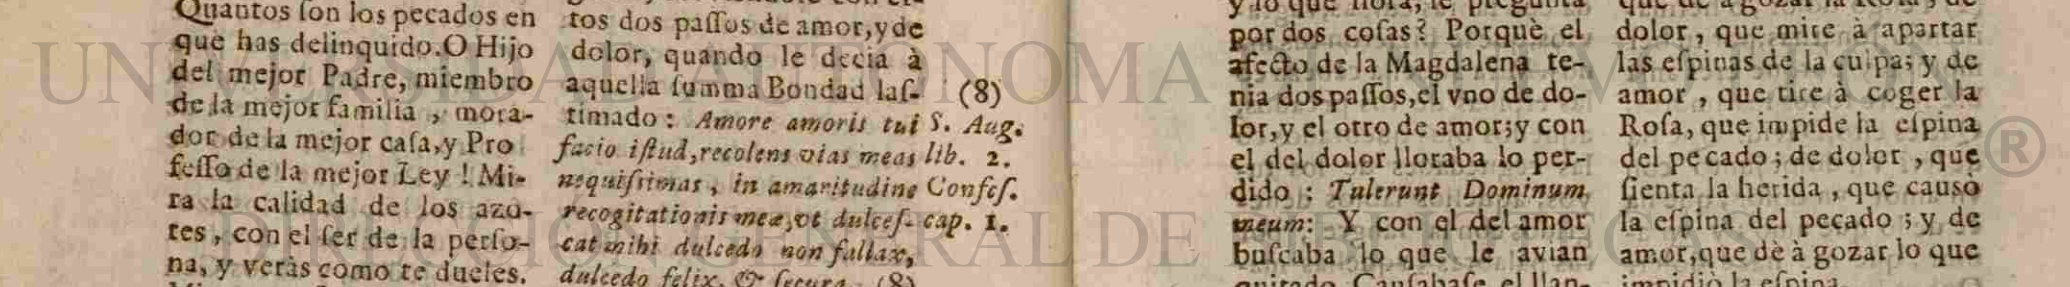 Quantos ſon los pecados en
que has delinquido. O Hijo
del mejor Padre, miembro
de la mejor familia, mora-
dor de la mejor caſa, y Pro
feſſo de la mejor Ley! Mi-
ra la calidad de los azo-
tes, con el ſer de la perſo-
na, y veràs como te dueles.
tos dos paſſos de amor, y de
dolor, quando le decia à
aquella ſumma Bondad laſ-
timado: Amore amoris tui
facio iſtud, recolens vias meas
nequiſsimas, in amaritudine
recogitationis meæ, vt dulceſ-
cat mihi dulcedo non fallax,
dulcedo felix, & ſecura. (8)
(8)
S. Aug.
lib. 2.
Confeſ.
cap. 1.
y lo que llora, le pregunta
por dos coſas? Porquè el
afecto de la Magdalena te-
nia dos paſſos, el vno de do-
lor, y el otro de amor; y con
el del dolor lloraba lo per-
dido: Tulerunt Dominum
meum: Y con el del amor
buſcaba lo que le avian
quitado. Cauſabaſe el llan-
dolor, que mire à apartar
las eſpinas de la culpa; y de
amor, que tire à coger la
Roſa, que impide la eſpina
del pecado; de dolor, que
ſienta la herida, que causò
la eſpina del pecado; y de
amor, que dè à gozar lo que
impidiò la eſpina.